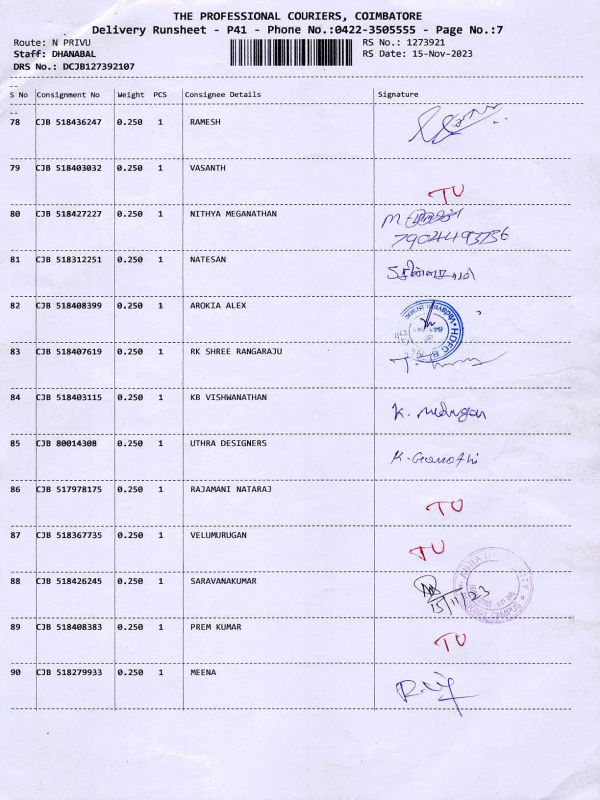 THE PROFESSIONAL COURIERS, COIMBATORE
Delivery Runsheet - P41 - Phone No.:0422-3505555 - Page No.:7
Route: N PRIVU RS No.: 1273921
Staff: DHANABAL RS Date: 15-Nov-2023
DRS No.: DCJB127392107
S No Consignment No Weight PCS Consignee Details Signature
78 CJB 518436247 0.250 1 RAMESH
79 CJB 518403032 0.250 1 VASANTH
TU
80 CJB 518427227 0.250 1 NITHYA MEGANATHAN
7904493756
81 CJB 518312251 0.250 1 NATESAN
82 CJB 518408399 0.250 1 AROKIA ALEX
83 CJB 518407619 0.250 1 RK SHREE RANGARAJU
84 CJB 518403115 0.250 1 KB VISHWANATHAN
85 CJB 80014308 0.250 1 UTHRA DESIGNERS
86 CJB 517978175 0.250 1 RAJAMANI NATARAJ
TU
87 CJB 518367735 0.250 1 VELUMURUGAN
TU
88 CJB 518426245 0.250 1 SARAVANAKUMAR
15/11/23
89 CJB 518408383 0.250 1 PREM KUMAR
TU
90 CJB 518279933 0.250 1 MEENA